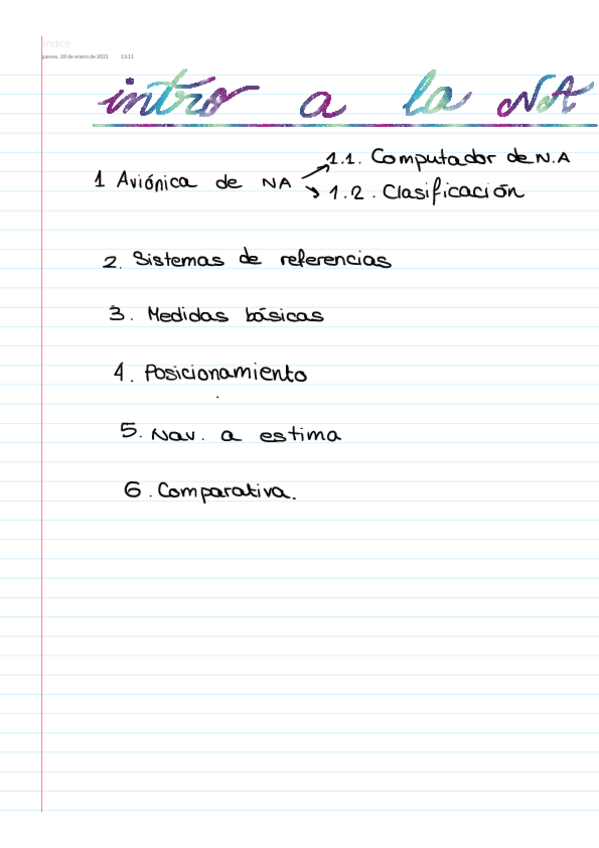 Índice
jueves, 28 de enero de 2021 13:11
intro a la NA
1 Aviónica de NA
1.1. Computador de N.A
1.2. Clasificación
2. Sistemas de referencias
3. Medidas básicas
4. Posicionamiento
5. Nav. a estima
6. Comparativa.